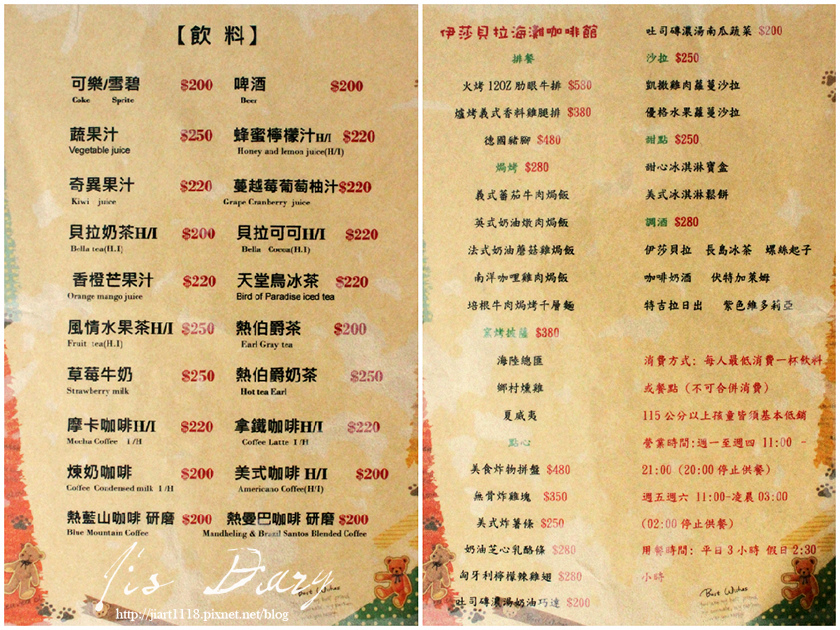 【飲 料】
可樂/雪碧 $200 啤酒 $200
Coke Sprite Beer
蔬果汁 $250 蜂蜜檸檬汁H/I $220
Vegetable juice Honey and lemon juice(H/I)
奇異果汁 $220 蔓越莓葡萄柚汁$220
Kiwi juice Grape Cranberry juice
貝拉奶茶H/I $200 貝拉可可H/I $220
Bella tea(H.I) Bella Cocoa(H.I)
香橙芒果汁 $220 天堂鳥冰茶 $220
Orange mango juice Bird of Paradise iced tea
風情水果茶H/I $250 熱伯爵茶 $200
Fruit tea(H.I) Earl Gray tea
草莓牛奶 $250 熱伯爵奶茶 $250
Strawberry milk Hot tea Earl
摩卡咖啡H/I $220 拿鐵咖啡H/I $220
Mocha Coffee I /H Coffee Latte I /H
煉奶咖啡 $200 美式咖啡 H/I $200
Coffee Condensed milk I /H Americano Coffee(H/I)
熱藍山咖啡 研磨 $200 熱曼巴咖啡 研磨 $200
Blue Mountain Coffee Mandheling & Brazil Santos Blended Coffee
Ji's Diary
http://jiart1118.pixnet.net/blog
伊莎貝拉海灘咖啡館
排餐
火烤 12OZ 肋眼牛排 $580
爐烤義式香料雞腿排 $380
德國豬腳 $480
焗烤 $280
義式蕃茄牛肉焗飯
英式奶油燉肉焗飯
法式奶油蘑菇雞焗飯
南洋咖哩雞肉焗飯
培根牛肉焗烤千層麵
窯烤披薩 $380
海陸總匯
鄉村燻雞
夏威夷
點心
美食炸物拼盤 $480
無骨炸雞塊 $350
美式炸薯條 $250
奶油芝心乳酪條 $280
匈牙利檸檬辣雞翅 $280
吐司磚濃湯奶油巧達 $200
吐司磚濃湯南瓜蔬菜 $200
沙拉 $250
凱撒雞肉蘿蔓沙拉
優格水果蘿蔓沙拉
甜點 $250
甜心冰淇淋寶盒
美式冰淇淋鬆餅
調酒 $280
伊莎貝拉 長島冰茶 螺絲起子
咖啡奶酒 伏特加萊姆
特吉拉日出 紫色維多莉亞
消費方式: 每人最低消費一杯飲料
或餐點（不可合併消費）
115 公分以上孩童皆須基本低銷
營業時間:週一至週四 11:00 -
21:00 (20:00 停止供餐)
週五週六 11:00-凌晨 03:00
(02:00 停止供餐)
用餐時間: 平日 3 小時 假日 2:30
小時
Best Wishes